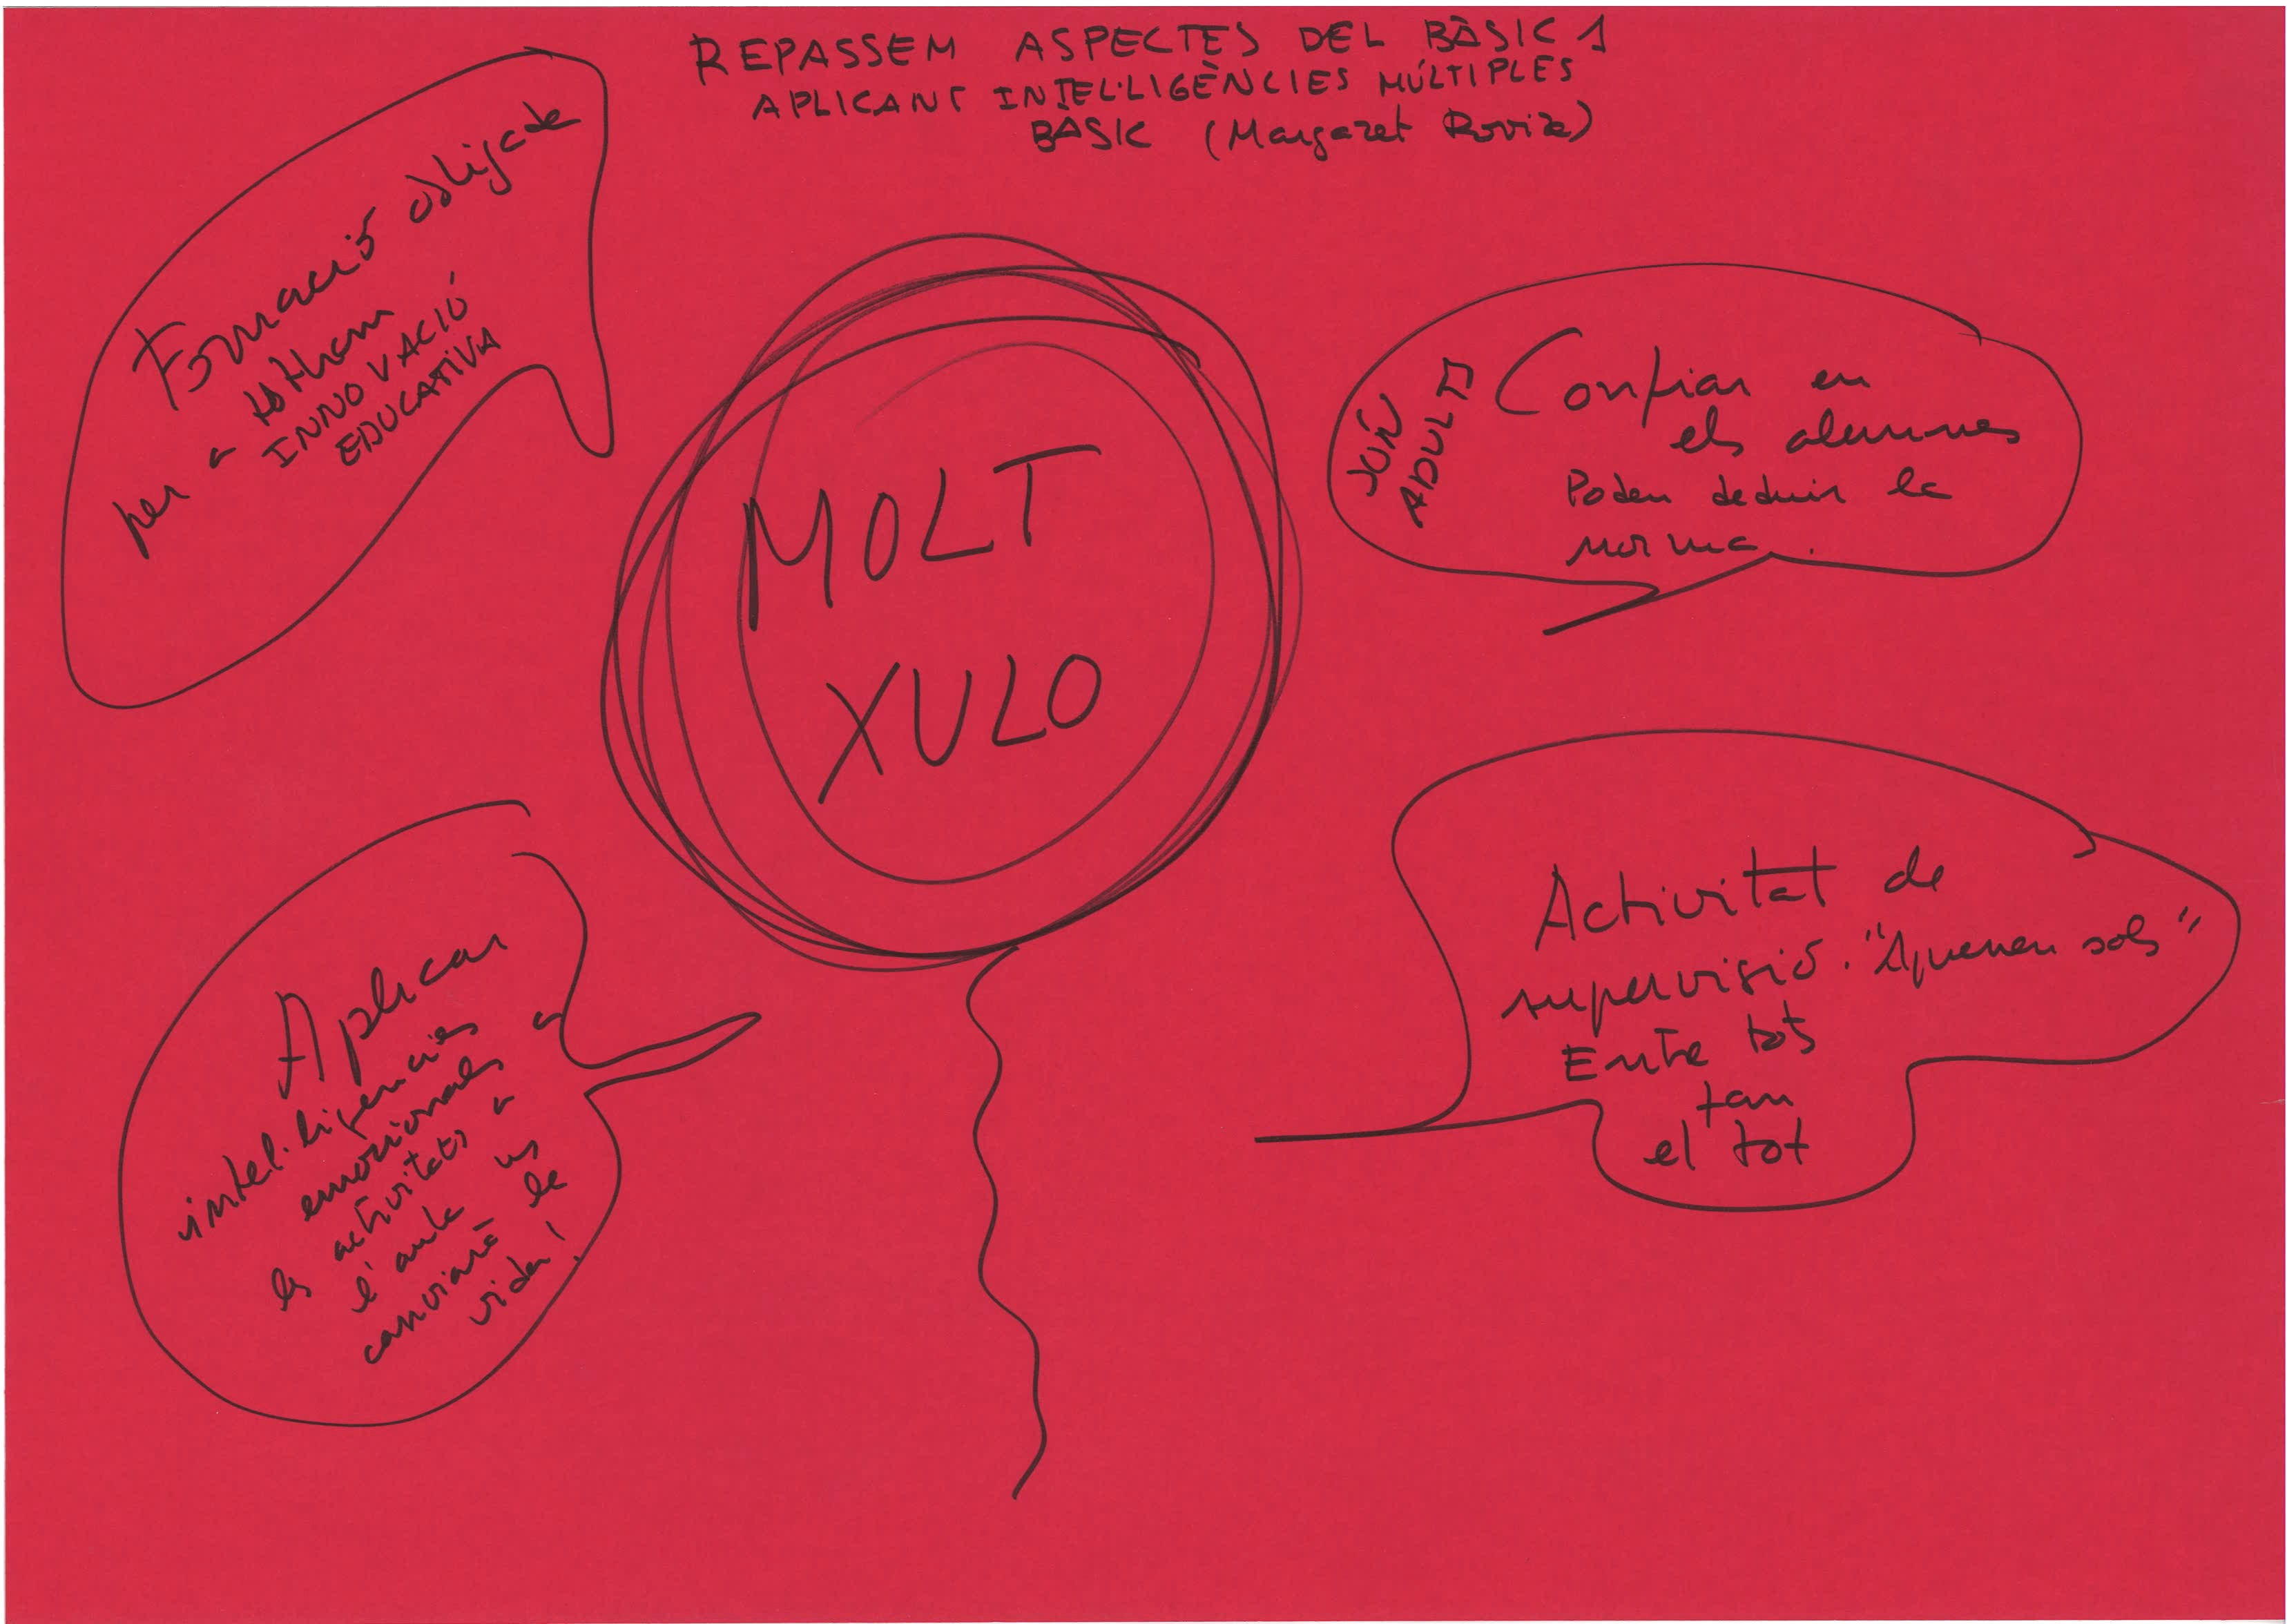 REPASSEM ASPECTES DEL BÀSIC 1
APLICANT INTEL·LIGÈNCIES MÚLTIPLES
BÀSIC (Margaret Rovira)
Formació obligada
per a tothom
INNOVACIÓ
EDUCATIVA
MOLT
XULO
Confiar en
els alumnes
Poden deduir la
norma.
Aplicar
intel·ligències
emocionals a
les activitats a
l'aula us
canviarà la
vida!
Activitat de
supervisió. "Aprenen sols"
Entre tots
fan
el tot